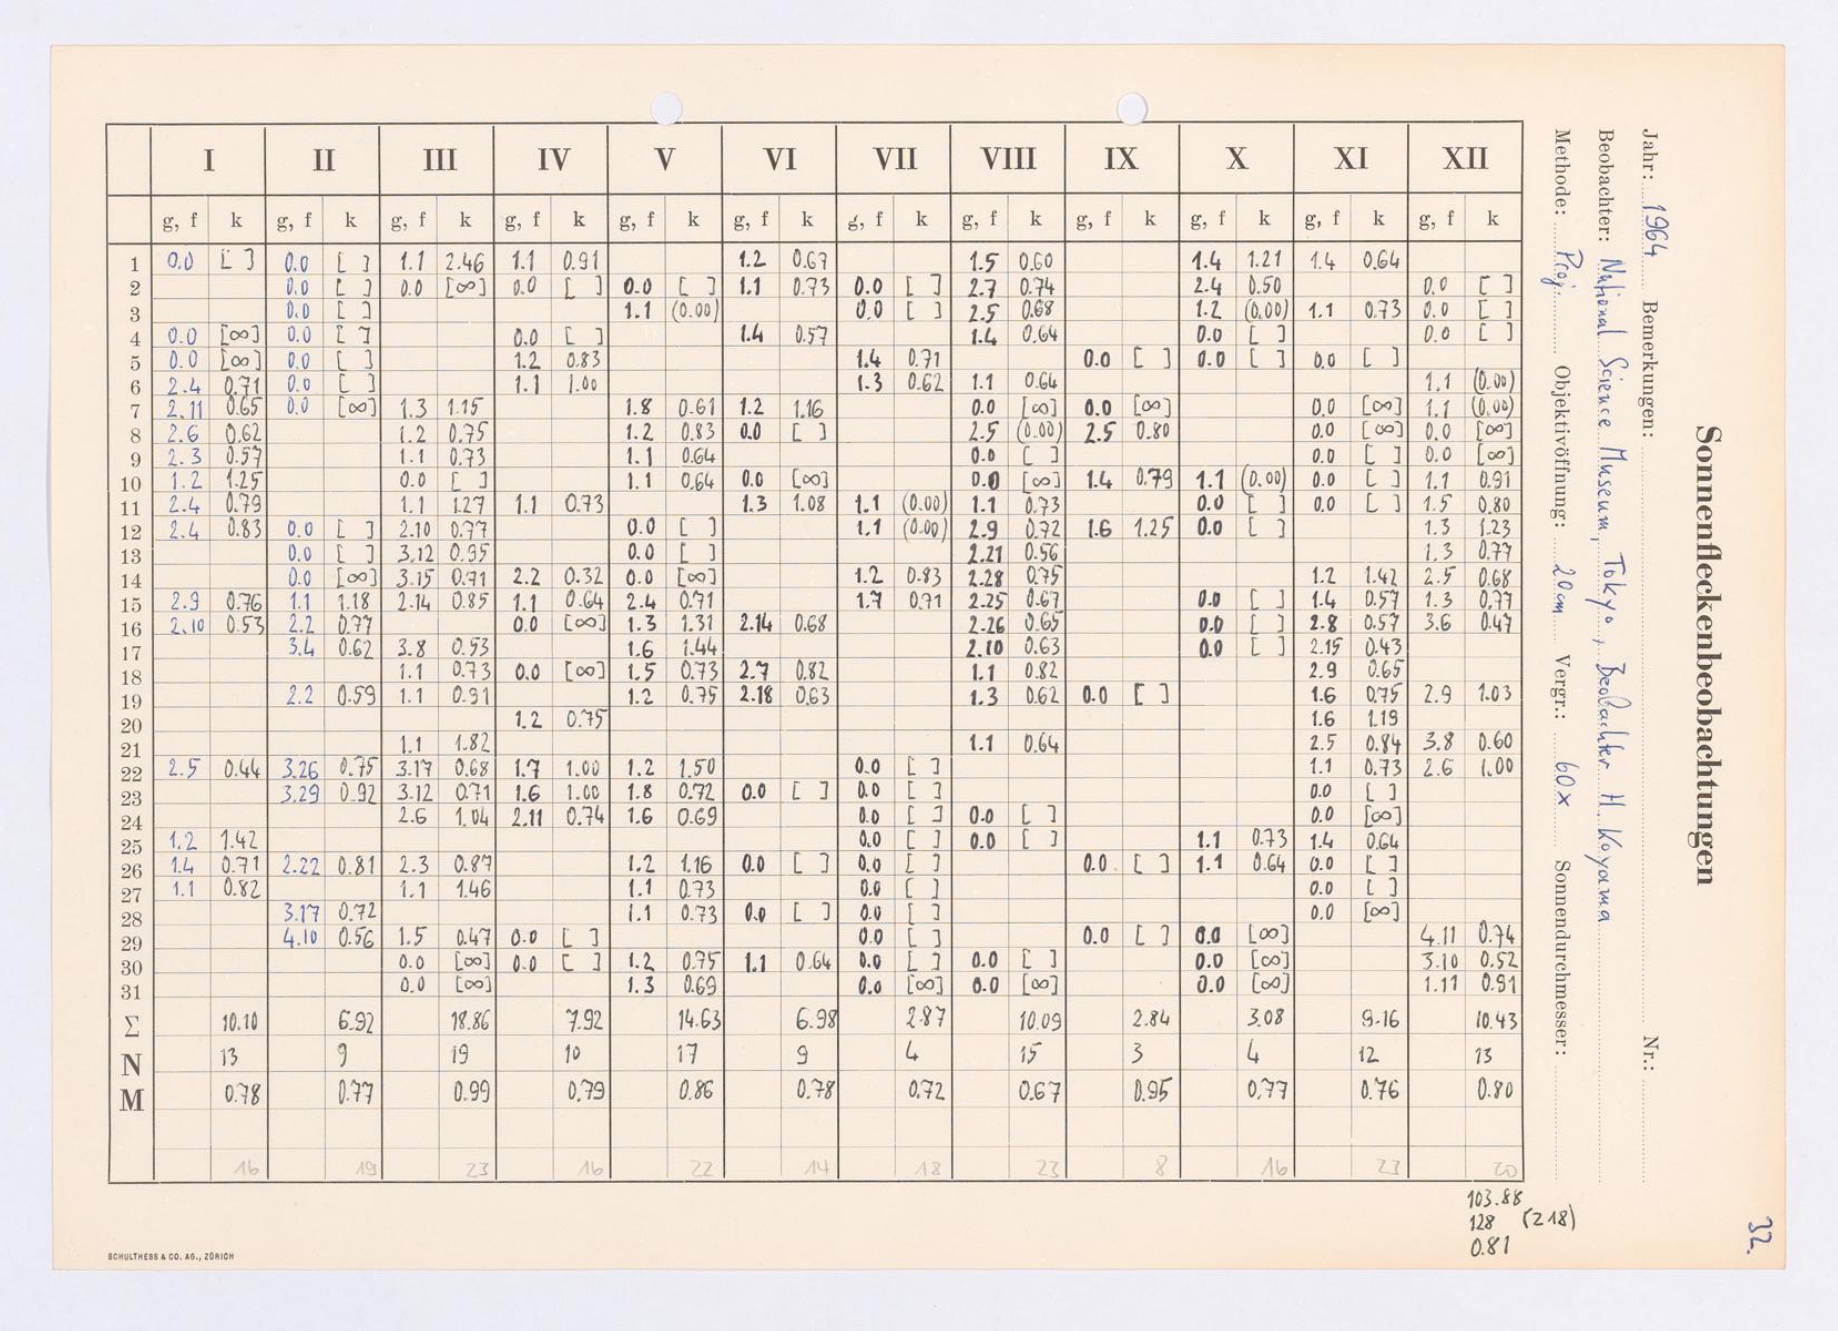 Sonnenfleckenbeobachtungen
Jahr: 1964 Bemerkungen: Nr.:
Beobachter: National Science Museum, Tokyo, Beobachter H. Koyama
Methode: Proj. Objektivöffnung: 20cm Vergr.: 60x Sonnendurchmesser:
I II III IV V VI VII VIII IX X XI XII
g, f k g, f k g, f k g, f k g, f k g, f k g, f k g, f k g, f k g, f k g, f k g, f k
1 0.0 [ ] 0.0 [ ] 1.1 2.46 1.1 0.91 1.2 0.67 1.5 0.60 1.4 1.21 1.4 0.64
2 0.0 [ ] 0.0 [∞] 0.0 [ ] 0.0 [ ] 1.1 0.73 0.0 [ ] 2.7 0.74 2.4 0.50 0.0 [ ]
3 0.0 [ ] 1.1 (0.00) 0.0 [ ] 2.5 0.68 1.2 (0.00) 1.1 0.73 0.0 [ ]
4 0.0 [∞] 0.0 [ ] 0.0 [ ] 1.4 0.57 1.4 0.64 0.0 [ ] 0.0 [ ]
5 0.0 [∞] 0.0 [ ] 1.2 0.83 1.4 0.71 0.0 [ ] 0.0 [ ] 0.0 [ ]
6 2.4 0.71 0.0 [ ] 1.1 1.00 1.3 0.62 1.1 0.64 1.1 (0.00)
7 2.11 0.65 0.0 [∞] 1.3 1.15 1.8 0.61 1.2 1.16 0.0 [∞] 0.0 [∞] 0.0 [∞] 1.1 (0.00)
8 2.6 0.62 1.2 0.75 1.2 0.83 0.0 [ ] 2.5 (0.00) 2.5 0.80 0.0 [∞] 0.0 [∞]
9 2.3 0.57 1.1 0.73 1.1 0.64 0.0 [ ] 0.0 [ ] 0.0 [∞]
10 1.2 1.25 0.0 [ ] 1.1 0.64 0.0 [∞] 0.0 [∞] 1.4 0.79 1.1 (0.00) 0.0 [ ] 1.1 0.91
11 2.4 0.79 1.1 1.27 1.1 0.73 1.3 1.08 1.1 (0.00) 1.1 0.73 0.0 [ ] 0.0 [ ] 1.5 0.80
12 2.4 0.83 0.0 [ ] 2.10 0.77 0.0 [ ] 1.1 (0.00) 2.9 0.72 1.6 1.25 0.0 [ ] 1.3 1.23
13 0.0 [ ] 3.12 0.95 0.0 [ ] 2.21 0.56 1.3 0.77
14 0.0 [∞] 3.15 0.71 2.2 0.32 0.0 [∞] 1.2 0.83 2.28 0.75 1.2 1.42 2.5 0.68
15 2.9 0.76 1.1 1.18 2.14 0.85 1.1 0.64 2.4 0.71 1.7 0.71 2.25 0.67 0.0 [ ] 1.4 0.57 1.3 0.77
16 2.10 0.53 2.2 0.77 0.0 [∞] 1.3 1.31 2.14 0.68 2.26 0.65 0.0 [ ] 2.8 0.57 3.6 0.47
17 3.4 0.62 3.8 0.53 1.6 1.44 2.10 0.63 0.0 [ ] 2.15 0.43
18 1.1 0.73 0.0 [∞] 1.5 0.73 2.7 0.82 1.1 0.82 2.9 0.65
19 2.2 0.59 1.1 0.91 1.2 0.75 2.18 0.63 1.3 0.62 0.0 [ ] 1.6 0.75 2.9 1.03
20 1.2 0.75 1.6 1.19
21 1.1 1.82 1.1 0.64 2.5 0.84 3.8 0.60
22 2.5 0.44 3.26 0.75 3.17 0.68 1.7 1.00 1.2 1.50 0.0 [ ] 1.1 0.73 2.6 1.00
23 3.29 0.92 3.12 0.71 1.6 1.00 1.8 0.72 0.0 [ ] 0.0 [ ] 0.0 [ ]
24 2.6 1.04 2.11 0.74 1.6 0.69 0.0 [ ] 0.0 [ ] 0.0 [∞]
25 1.2 1.42 0.0 [ ] 0.0 [ ] 1.1 0.73 1.4 0.64
26 1.4 0.71 2.22 0.81 2.3 0.87 1.2 1.16 0.0 [ ] 0.0 [ ] 0.0 [ ] 1.1 0.64 0.0 [ ]
27 1.1 0.82 1.1 1.46 1.1 0.73 0.0 [ ] 0.0 [ ]
28 3.17 0.72 1.1 0.73 0.0 [ ] 0.0 [ ] 0.0 [∞]
29 4.10 0.56 1.5 0.47 0.0 [ ] 0.0 [ ] 0.0 [ ] 0.0 [∞] 4.11 0.74
30 0.0 [∞] 0.0 [ ] 1.2 0.75 1.1 0.64 0.0 [ ] 0.0 [ ] 0.0 [∞] 3.10 0.52
31 0.0 [∞] 1.3 0.69 0.0 [∞] 0.0 [∞] 0.0 [∞] 1.11 0.91
Σ 10.10 6.92 18.86 7.92 14.63 6.98 2.87 10.09 2.84 3.08 9.16 10.43
N 13 9 19 10 17 9 4 15 3 4 12 13
M 0.78 0.77 0.99 0.79 0.86 0.78 0.72 0.67 0.95 0.77 0.76 0.80
16 19 23 16 22 14 18 23 8 16 23 20
103.88
128 (218)
0.81
32.
SCHULTHESS & CO. AG., ZÜRICH